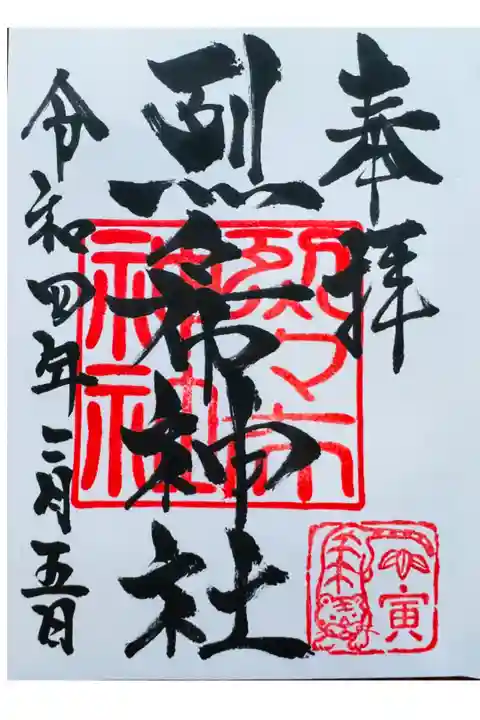 奉拝
烈々布神社
令和四年二月五日
烈々布
神社
寅